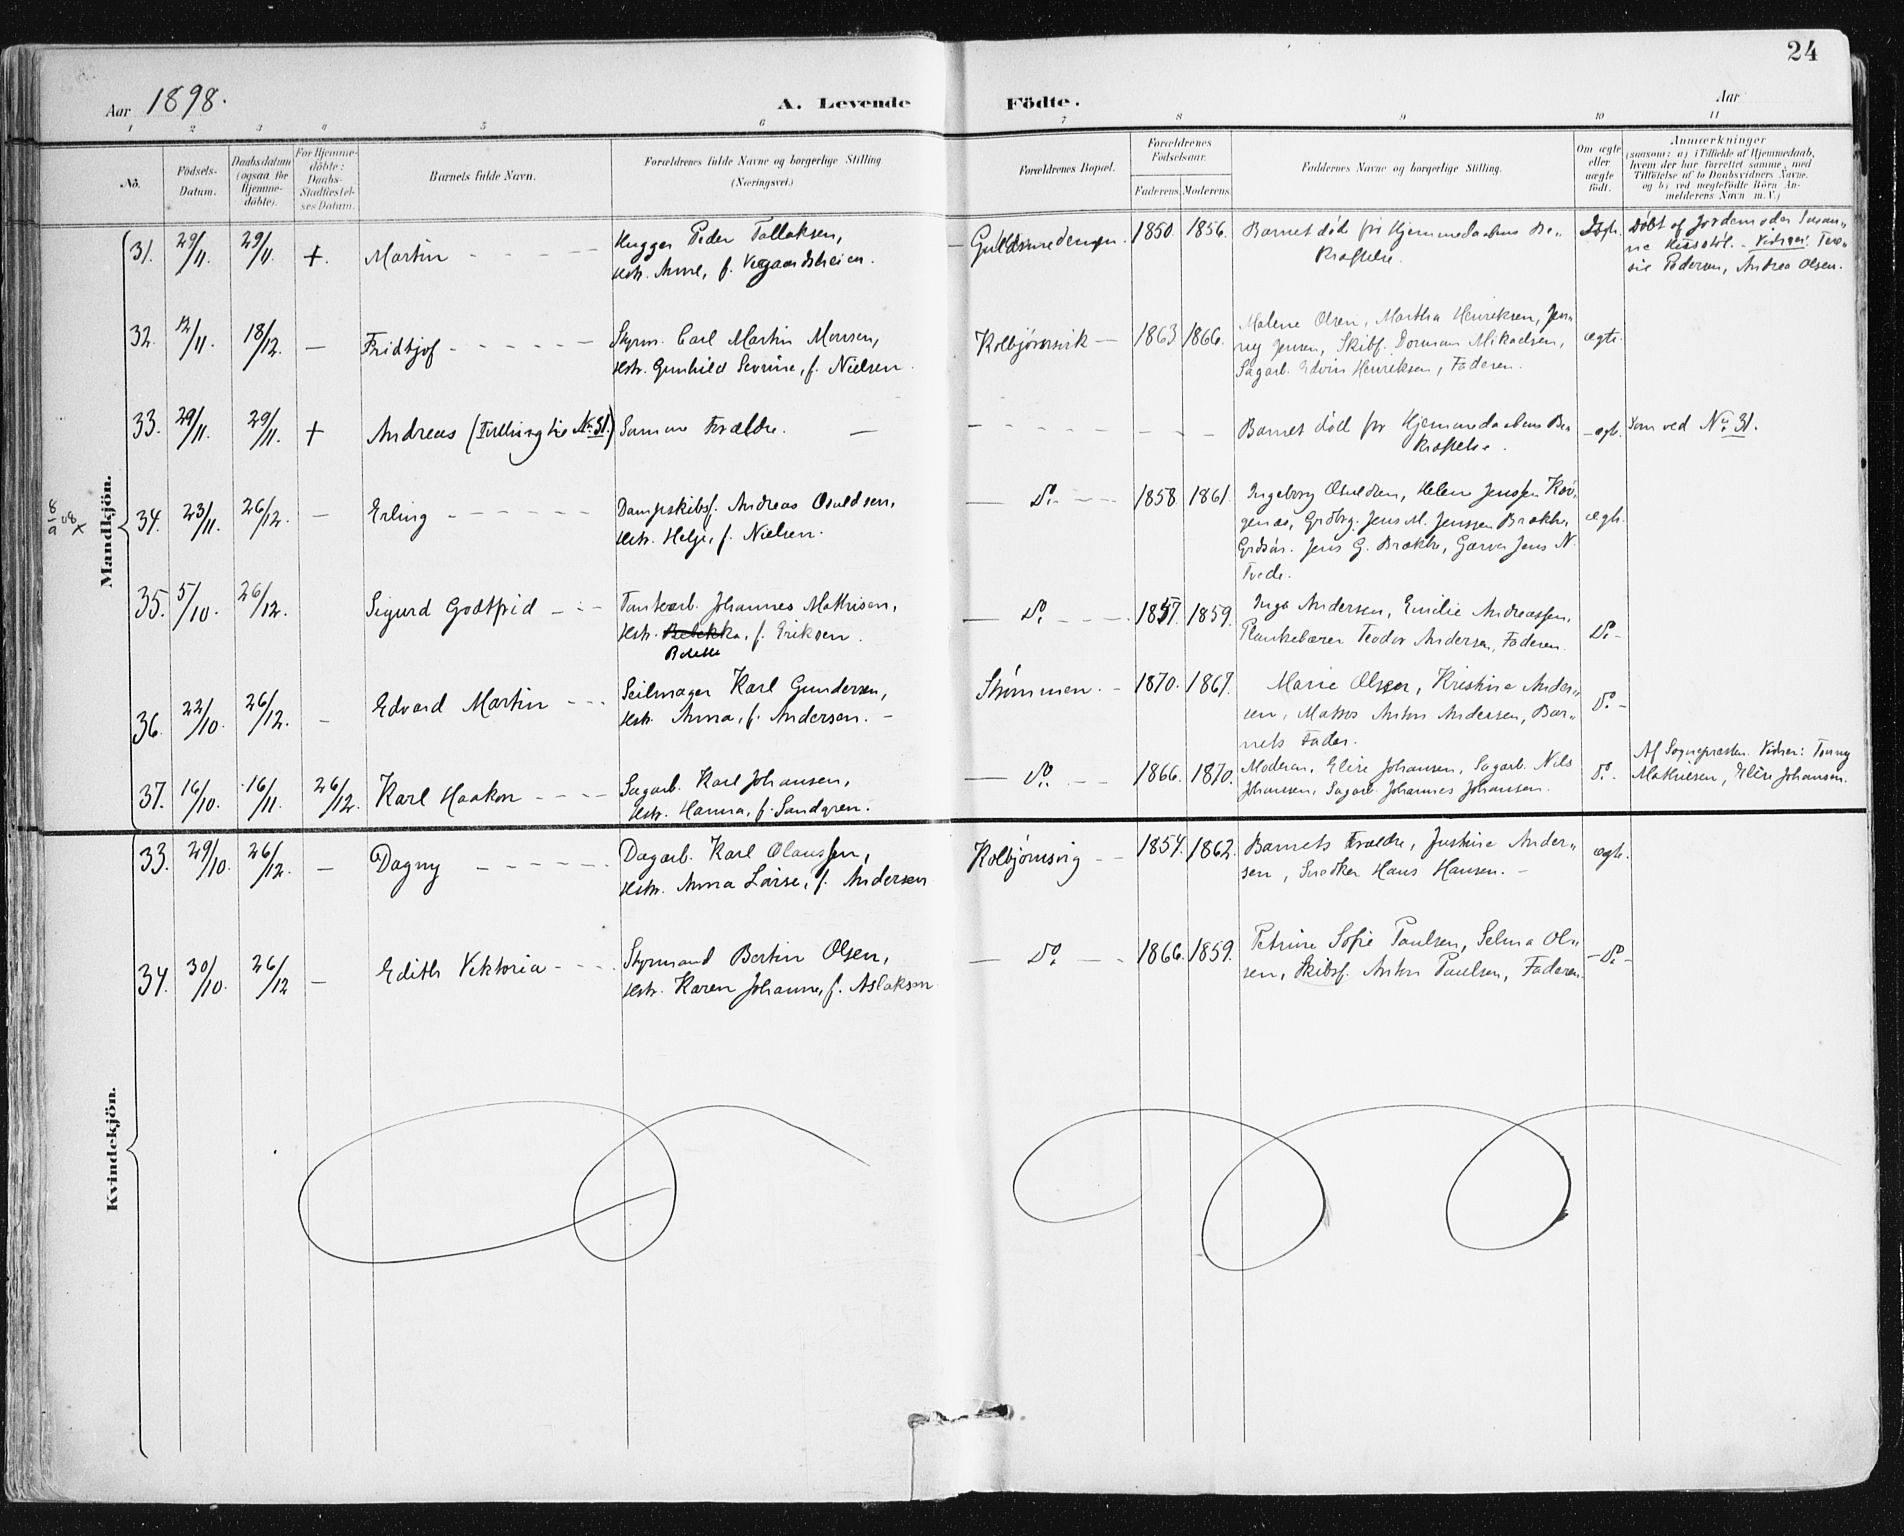 24
Aar 1898.
A. Levende Födte.
Aar
1 2 3 4 5 6 7 8 9 10 11
No.
Födsels-Datum.
Daabsdatum (ogsaa for Hjemme-döbte).
For Hjemme-döbte: Daabs-Stadfæstel-ses Datum.
Barnets fulde Navn.
Forældrenes fulde Navne og borgerlige Stilling
(Næringsvei.)
Forældrenes Bopæl.
Forældrenes Födselsaar.
Faderens. Moderens.
Faddernes Navne og borgerlige Stilling.
Om ægte eller uægte födt.
Anmærkninger
(saasom: a) i Tilfælde af Hjemmedaab,
hvem der har forrettet samme, med
Tilföielse af to Daabsvidners Navne.
og b) ved uægtefödte Börn An-
melderens Navn m. V.)
Mandkjön.
31. 29/11. 29/11 +. Martin
Hugger Peder Tallaksen,
Hstr. Anne, f. Vegaardsheien.
1850. 1856.
Barnet död før Hjemmedaabens Be-
kræftelse.
Døbt af Jordemoder
Pedersen, Andrea Olsen.
32. 12/11. 18/12. – Fridtjof
Styrm. Carl Martin Monsen,
Hstr. Gunhild Severine, f. Nielsen.
Kolbjørnsvik – 1863 1866.
Malene Olsen, Martha Henriksen, Jen-
ny Jensen, Skibsf. Mikaelsen,
Sagarb. Edvin Henriksen, Faderen.
ægte.
33. 29/11. 29/11. + Andreas (Tvilling til No. 31)
Samme Forældre. –
Barnet død før Hjemmedaabens Be-
kræftelse.
ægt. Som ved No. 31.
8/9 08 x
34. 23/11. 26/12. – Erling
Dampskibsf. Andreas Osuldsen,
Hstr. Helje, f. Nielsen.
– Do. – 1858. 1861.
Ingeborg Osuldsen, Helene Jenssen
Jens M. Jenssen Brække,
Jens G. Brække, Garver Jens N.
Tvede.
ægte.
35. 5/10. 26/12. Sigurd Godtfrid
Johannes Mathisen,
Hstr. Rebekka, f. Eriksen.
Bolette
– Do. – 1857. 1859.
Inga Andersen, Emilie Andreassen,
Plankebærer Teodor Andersen, Faderen.
Do. –
36. 22/10. 26/12. – Edvard Martin
Seilmager Karl Gundersen,
Hstr. Anna, f. Andersen. –
Strømmen. – 1870. 1867.
Marie Olsen, Kristine Ander-
sen, Matros Anton Andersen, Bar-
nets Fader.
Do. –
37. 16/10. 16/11. 26/12. Karl Haakon
Sagarb. Karl Johansen,
Hstr. Hanna, f. Sandgren.
– Do. – 1866. 1870.
Moderen, Elise Johansen, Sagarb. Nils
Johansen, Sagarb. Johannes Johansen.
Do. –
Af Sognepresten. Vidner: Tenny
Mathiesen, Elise Johansen.
Kvindekjön.
33. 29/10. 26/12. – Dagny
Dagarb. Karl Olaussen,
Hstr. Anna Lovise, f. Andersen
Kolbjørnsvig – 1854. 1862.
Barnets Forældre, Justine Ander-
sen, Snedker Hans Hansen. –
ægte.
34. 30/10. 26/12 – Edith Viktoria
Styrmand Bertin Olsen,
Hstr. Karen Johanne, f. Aslaksen
– Do. – 1866. 1859.
Petrine Sofie Paulsen, Selma Ol-
sen, Skibsf. Anton Paulsen, Faderen.
– Do. –